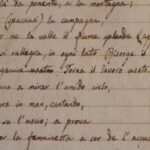 da ponente, a la montagna;
(spaccasi) la campagna,
ne la valle il fiume splende
si rallegra, in ogni lato (Risorge il
usato Torna il lavoro usato
a mirar l'umido
in man, cantando,
su l'uscio; a prova
la femminetta a cor de l'acqu